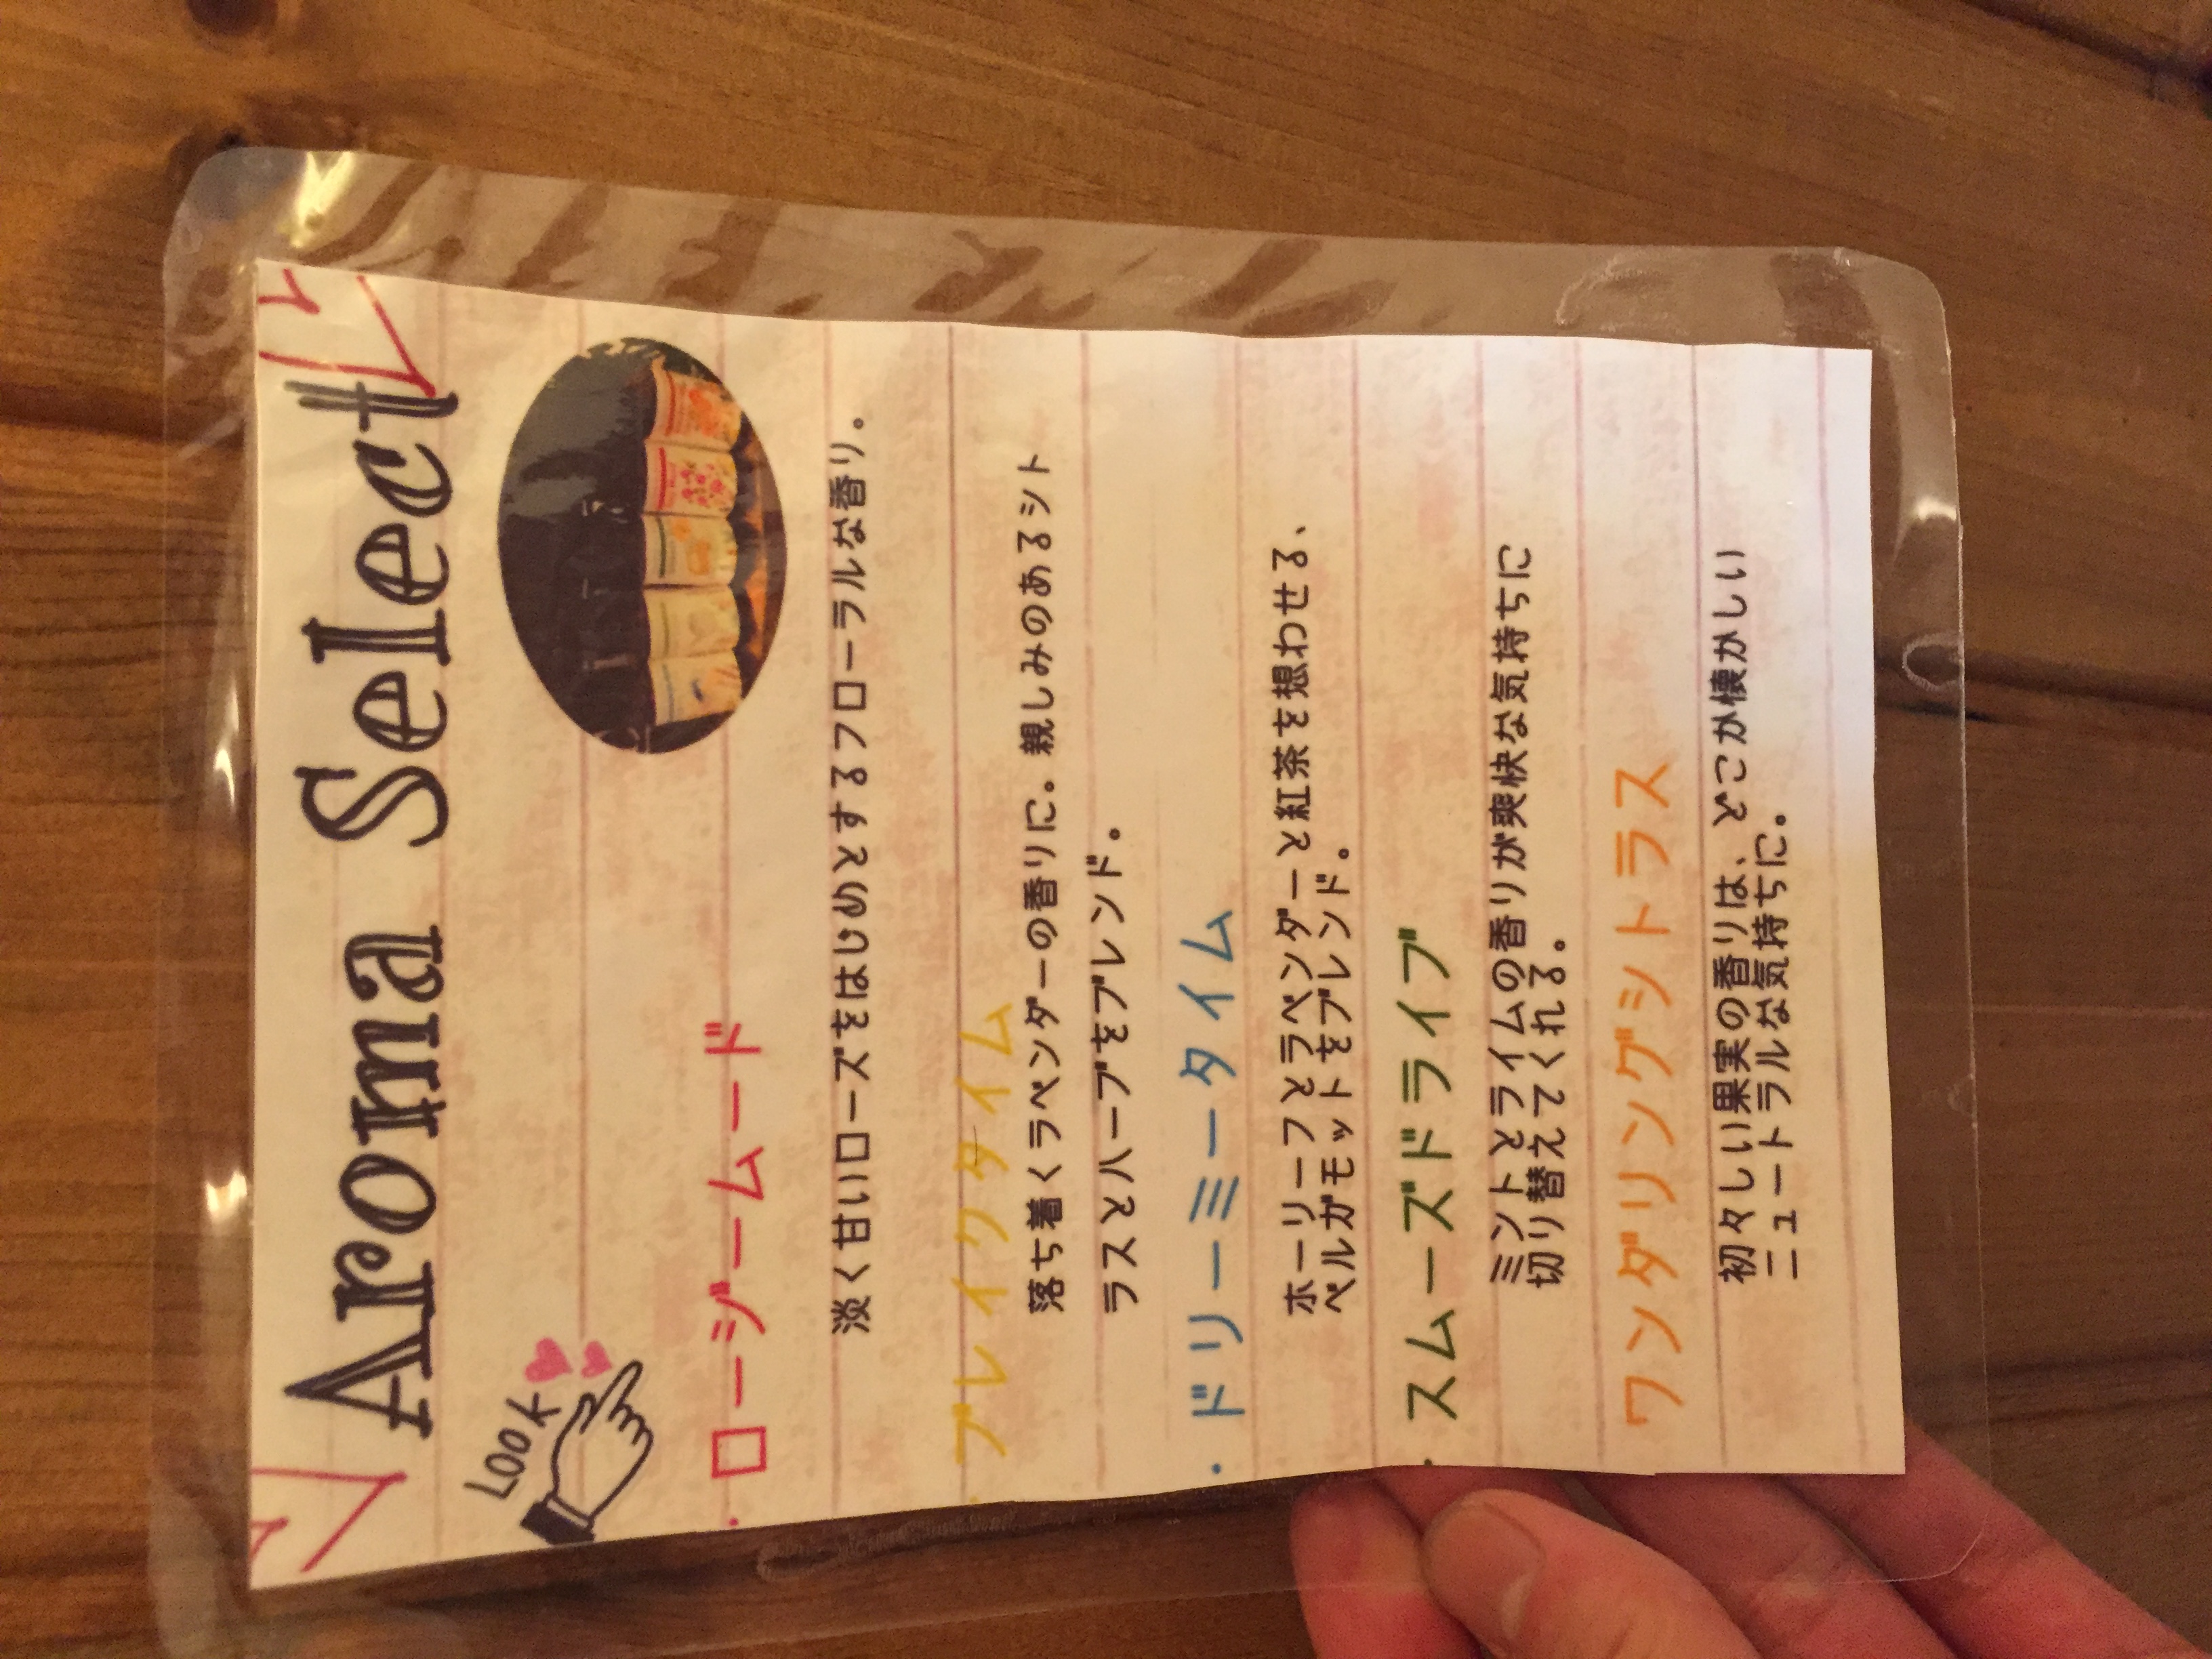 Aroma Select
LOOK
・ロージームード
淡く甘いローズをはじめとするフローラルな香り。
・ブレイクタイム
落ち着くラベンダーの香りに。親しみのあるシト
ラスとハーブをブレンド。
・ドリーミータイム
ホーリーフとラベンダーと紅茶を想わせる、
ベルガモットをブレンド。
・スムーズドライブ
ミントとライムの香りが爽快な気持ちに
切り替えてくれる。
ワンダリングシトラス
初々しい果実の香りは、どこか懐かしい
ニュートラルな気持ちに。